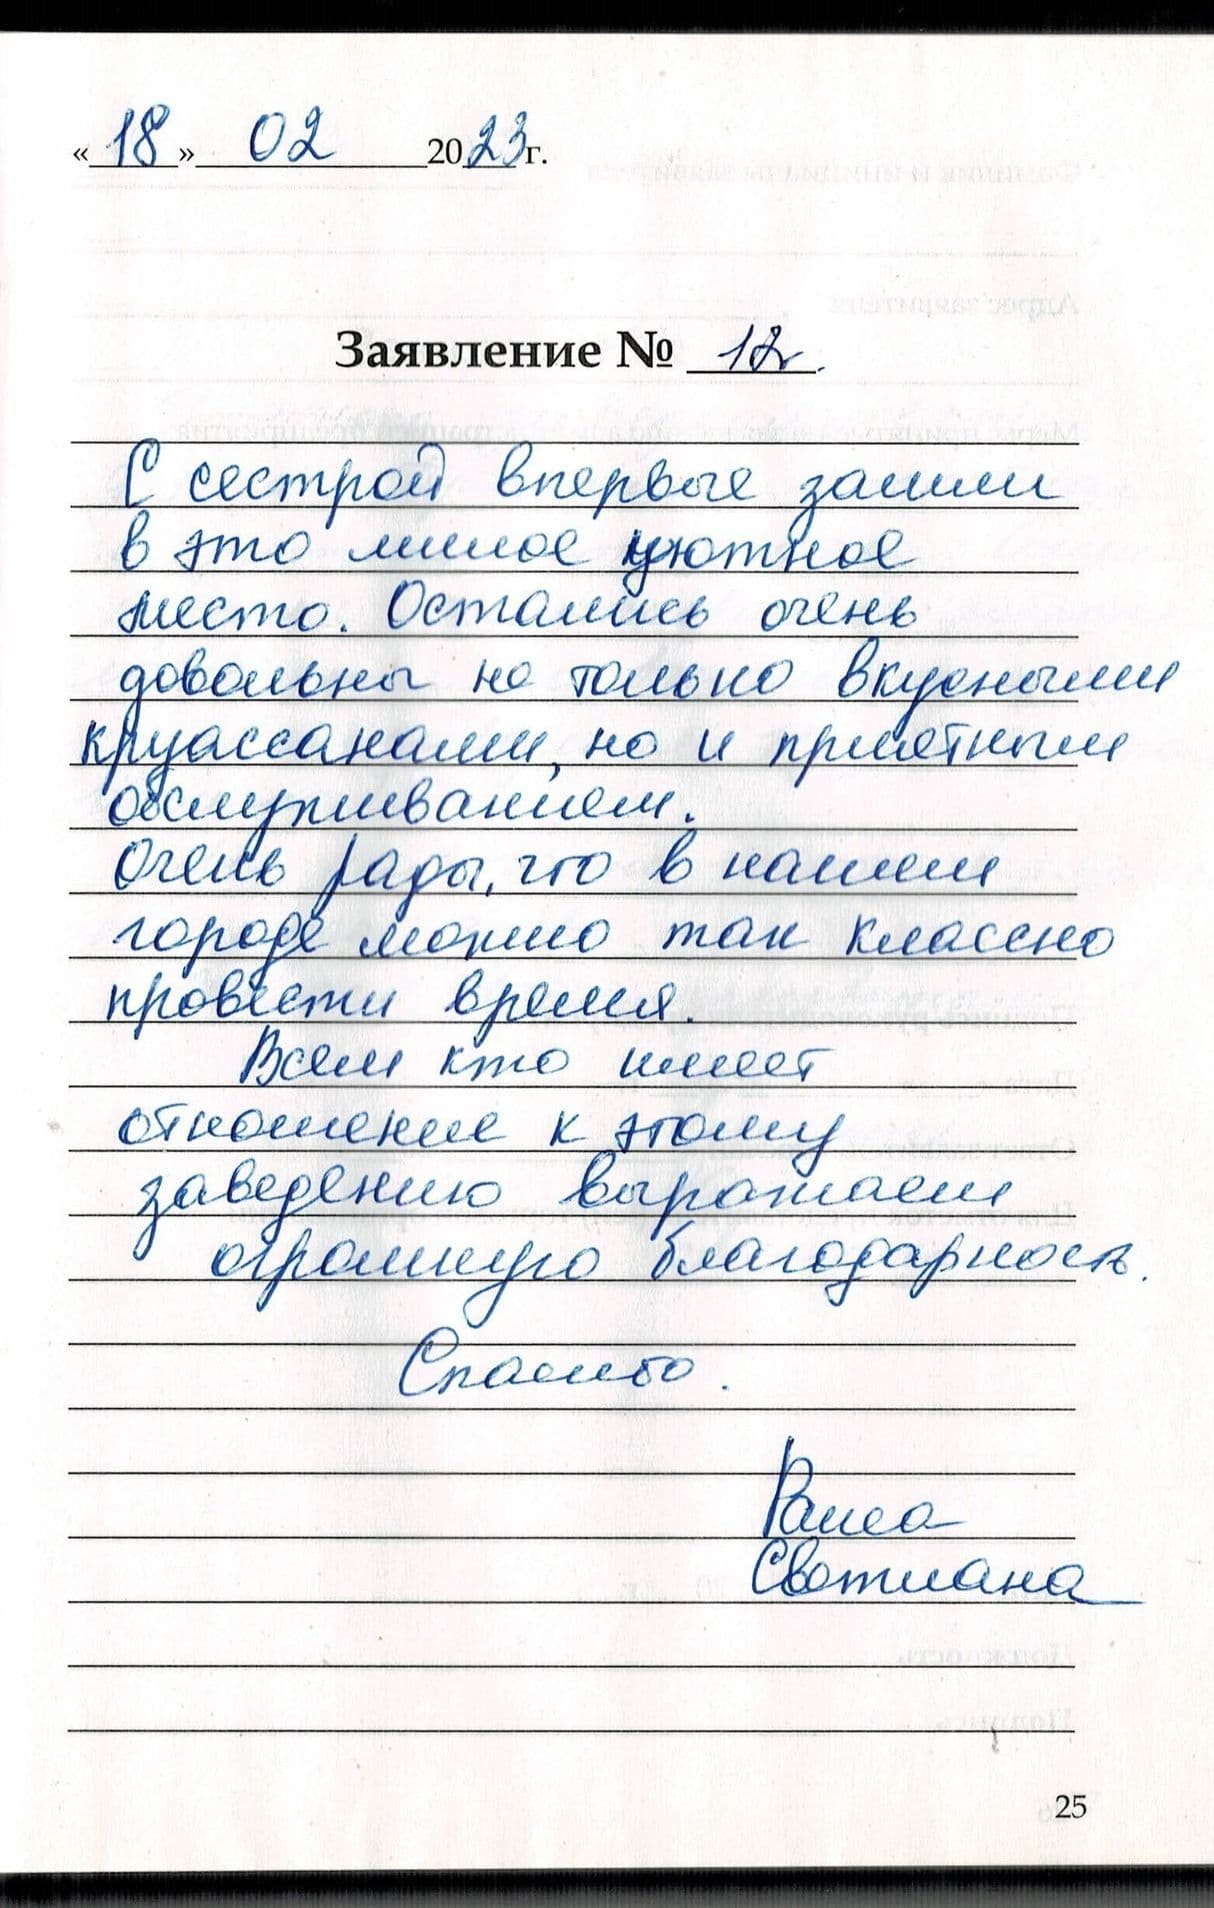 «18» 02 2023г.
Заявление № 12.
С сестрой впервые зашли
в это милое уютное
место. Остались очень
довольны не только вкусными
круассанами, но и приятным
обслуживанием.
Очень рады, что в нашем
городе можно так классно
провести время.
Всем кто имеет
отношение к этому
заведению выражаем
огромную благодарность.
Спасибо.
Раиса
Светлана
25